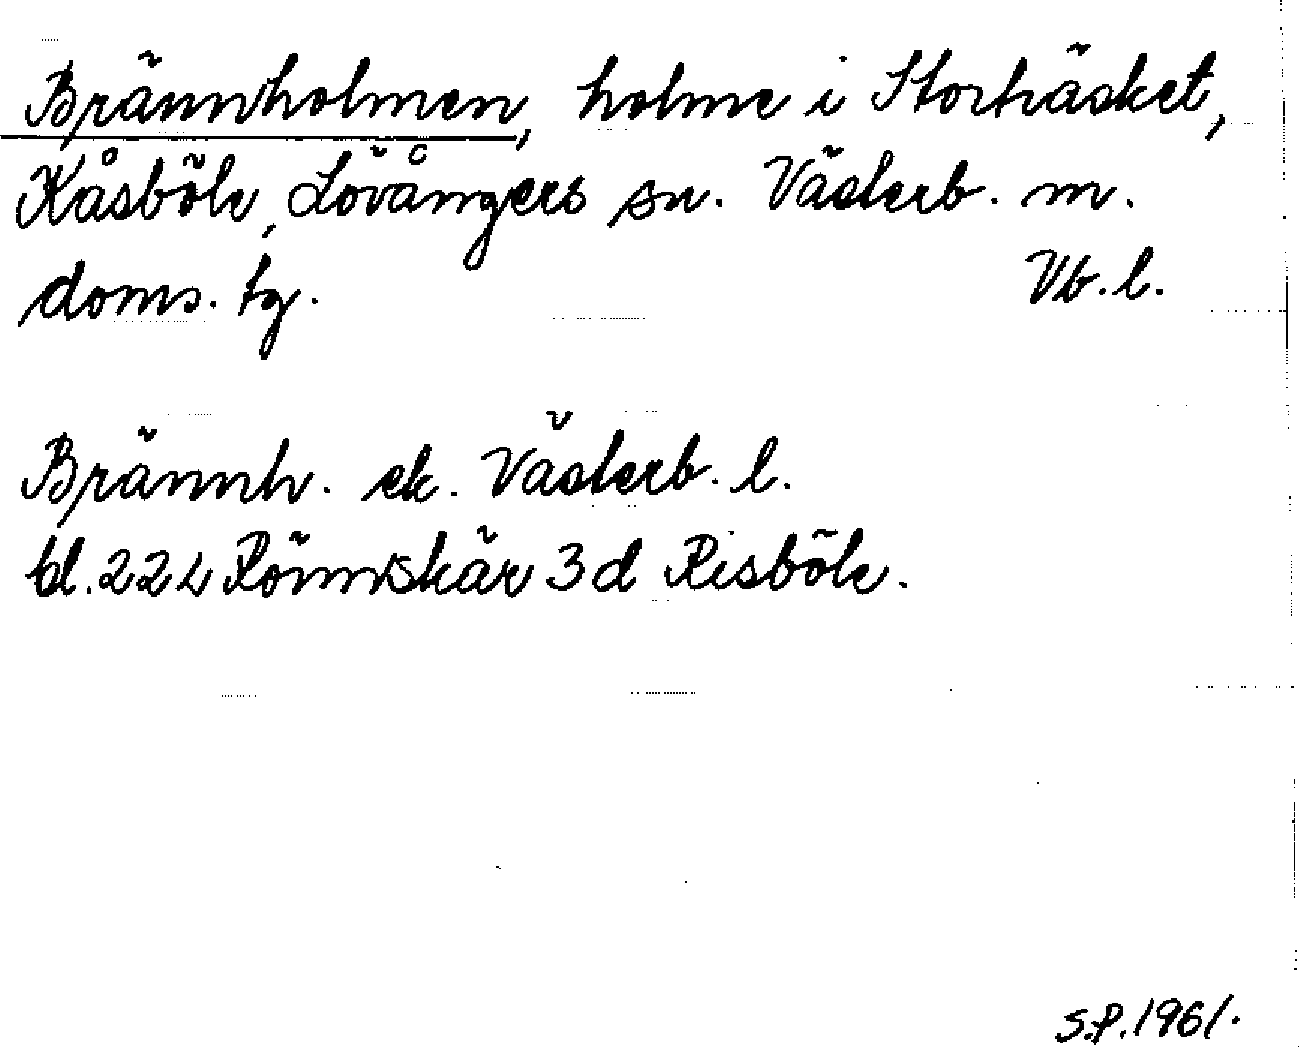 Brännholmen, holme i Storträsket,
Kåsböle, Lövångers sn. Västerb. m.
doms. tg. Vb. l.
Brännh. ek. Västerb. l.
bl. 22 L Rönnskär 3 d Risböle.
S.P. 1961.